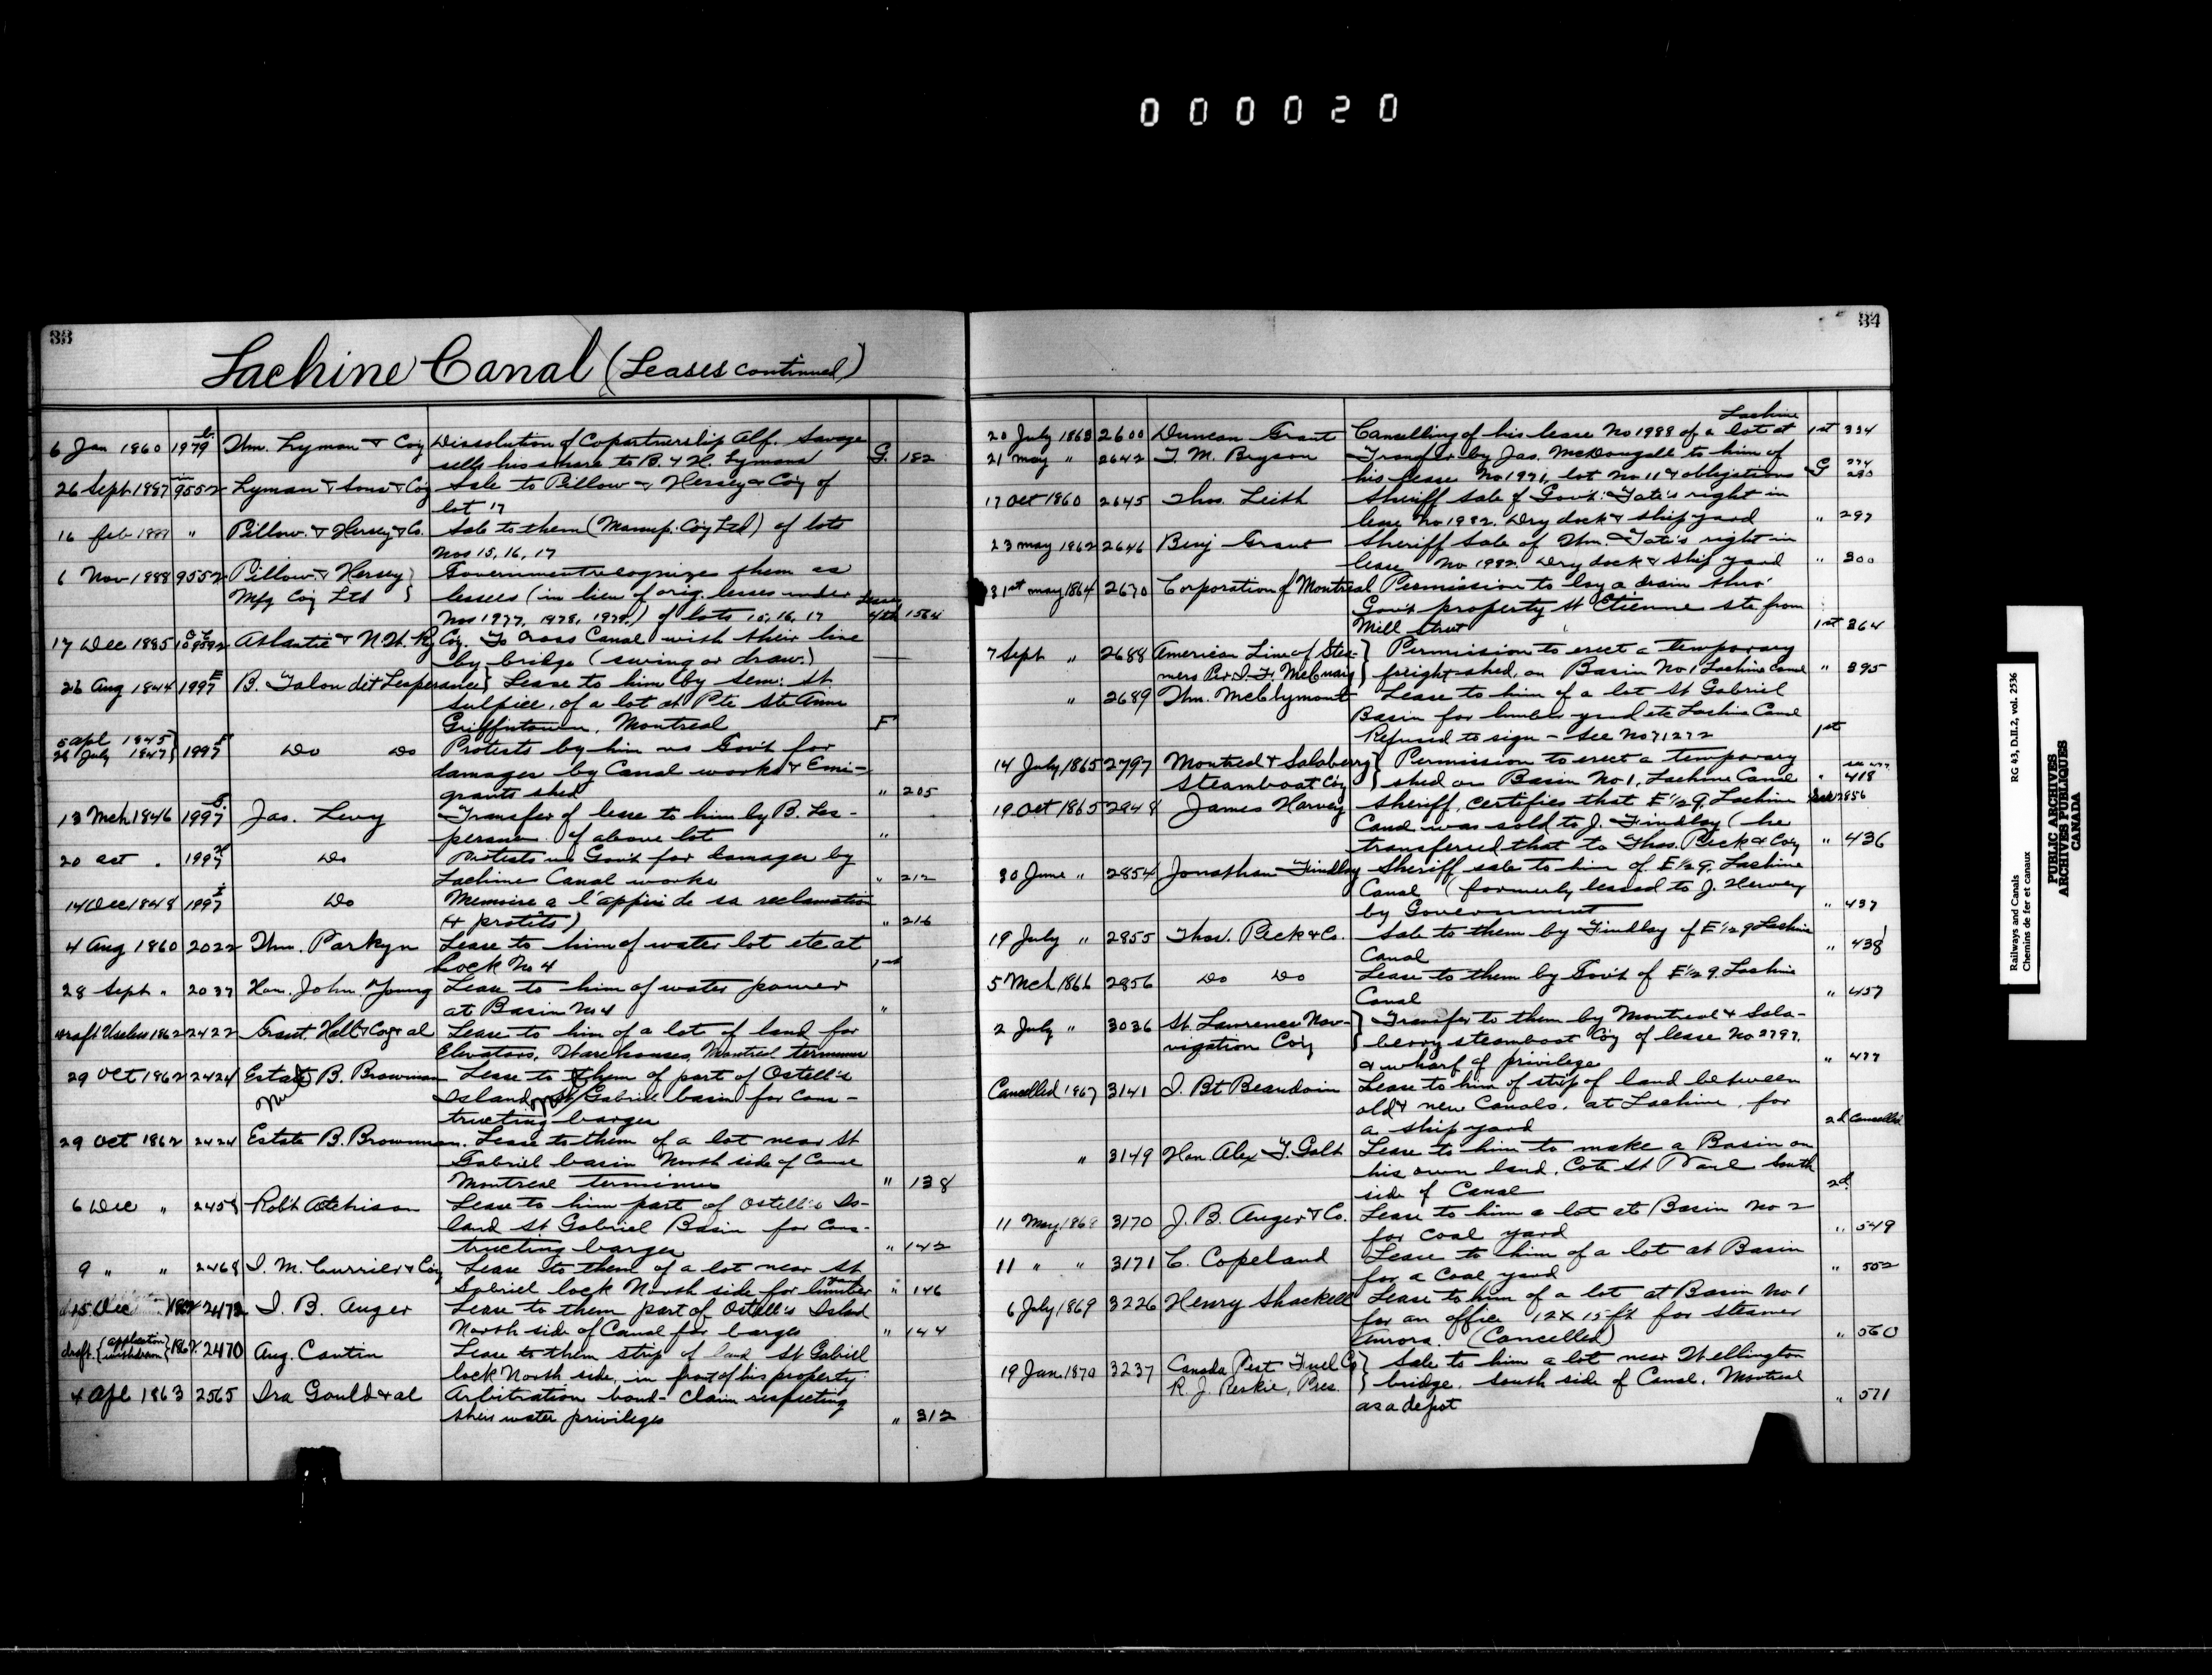 000020
33
Lachine Canal (Leases continued)
6 Jan 1860 1979 Wm. Lyman & Coy Dissolution of Copartnership Alf. Savage
sells his share to B. & H. Lymans G. 182
26 Sept 1887 9552 Lyman & Sons & Coy Sale to Pillow & Hersey & Coy of
lot 17
16 feb " Pillow & Hersey & Co. Sale to them (Manuf. Coy Ltd) of lots
Nos 15, 16, 17
6 Nov 1888 9552 Pillow & Hersey } Government recognizes them as
Mfg Coy Ltd } lessees (in lieu of orig. lesses under Lease
Nos 1977, 1978, 1979,) of lots 15, 16, 17 4th 1564
17 Dec 1885 Atlantic & N.W. Ry Coy. To cross Canal with their line
by bridge (swing or draw.) —
26 Aug 1844 1997 E B. Talon dit Lesperance } Lease to him by Sem: St
Sulpice, of a lot at Pte Ste Anne
Griffintown, Montreal F
5 apl 1845
28 July 1847 } 1997 F Do Do Protests by him vs Gov't for
damages by Canal works & Emi-
grants shed " 205
13 Mch 1846 1997 Jas. Levy Transfer of lease to him by B. Les-
perance of above lot "
20 oct . 1997 Do Protests vs Gov't for damages by
Lachine Canal works " 212
14 Dec 1848 1997 Do Memoire a l'appui de sa reclamation
(4 protits) " 216
4 Aug 1860 2022 Wm. Parkyn Lease to him of water lot etc at
Lock No 4 1st
28 Sept " 2037 Hon. John Young Lease to him of water power
at Basin No 4 "
draft Useless 1862 2422 Grant, Hall & Coy & al Lease to him of a lot of land for
Elevators, Warehouses, Montreal terminus
29 Oct 1862 2424 Estate B. Brownman Lease to them of part of Ostell's
Nul Island St Gabriel basin for Cons-
tructing barges
29 Oct 1862 2424 Estate B. Brownman. Lease to them of a lot near St
Gabriel basin North side of Canal
Montreal terminus " 138
6 Dec " 2458 Robt Atchison Lease to him part of Ostell's Is-
land St Gabriel Basin for Cons-
tructing barges " 142
9 " " 2468 I. M. Currier & Coy Lease to them of a lot near St
Gabriel lock North side for lumber yard " 146
15 Dec 1862 2472 I. B. Auger Lease to them part of Ostell's Island
North side of Canal for barges " 144
draft {application withdrawn} 1862 2470 Aug. Cantin Lease to them strip of land St Gabriel
lock North side, in front of his property
4 Apl 1863 2565 Ira Gould & al Arbitration bond - Claim respecting
their water privileges " 312
34
Lachine
20 July 1863 2600 Duncan Grant Cancelling of his lease No 1988 of a lot at 1st 334
21 may " 2642 T. M. Bryson Transfer by Jas. McDougall to him of
his lease No 1971, lot No 11 & obligations G 280
17 Oct 1860 2645 Thos. Leith Sheriff sale of Gov't: Tate's right in
lease No 1982. Dry dock & ship yard " 297
23 may 1862 2646 Benj Grant Sheriff Sale of Wm. Tate's right in
lease No 1982. Dry dock & ship yard " 300
31st may 1864 2670 Corporation of Montreal Permission to lay a drain thro'
Gov't property St Etienne ste from
Mill street 1st 364
7 Sept " 2688 American Line of Stea- } Permission to erect a temporary
mers Per I. F. McCuaig } freight shed, on Basin No 1 Lachine Canal " 395
" 2689 Wm. McClymont Lease to him of a lot St Gabriel
Basin for lumber yard etc Lachine Canal
Refused to sign - see No 71272 1st
14 July 1865 2797 Montreal & Salaberry } Permission to erect a temporary
Steamboat Coy } shed on Basin No 1, Lachine Canal " 418
19 Oct 1865 2948 James Harvey Sheriff, certifies that E ½ 9, Lachine See 12856
Canal was sold to J. Findlay (he
transferred that to Thos. Peck & Coy " 436
30 June " 2854 Jonathan Findlay Sheriff sale to him of E ½ 9, Lachine
Canal (formerly leased to J. Hervey
by Government " 437
19 July " 2855 Thos. Peck & Co. Sale to them by Findlay of E ½ 9 Lachine
Canal " 438
5 Mch 1866 2856 Do Do Lease to them by Gov't of E ½ 9. Lachine
Canal " 457
2 July " 3036 St. Lawrence Nav- } Transfer to them by Montreal & Sala-
vigation Coy } berry steamboat Coy of lease No 2797.
& wharf of privilege " 477
Cancelled 1867 3141 I. Bt Beaudoin Lease to him of strip of land between
old & new Canals, at Lachine, for
a ship yard 2d Cancelled
" 3149 Hon. Alex T. Galt Lease to him to make a Basin on
his own land, Cote St Paul South
side of Canal 2d.
11 May 1868 3170 J. B. Auger & Co. Lease to him a lot at Basin No 2
for coal yard " 549
11 " " 3171 C. Copeland Lease to him of a lot at Basin
for a Coal yard " 552
6 July 1869 3226 Henry Shackell Lease to him of a lot at Basin No 1
for an office 12 X 15 ft for steamer
Aurora. (Cancelled) " 560
19 Jan. 1870 3237 Canada Peat Fuel Co } Sale to him a lot near Wellington
R. J. Reekie, Pres. } bridge, South side of Canal, Montreal
as a depot " 571
Railways and Canals RG 43, D.II.2, vol. 2536
Chemins de fer et canaux
PUBLIC ARCHIVES
ARCHIVES PUBLIQUES
CANADA